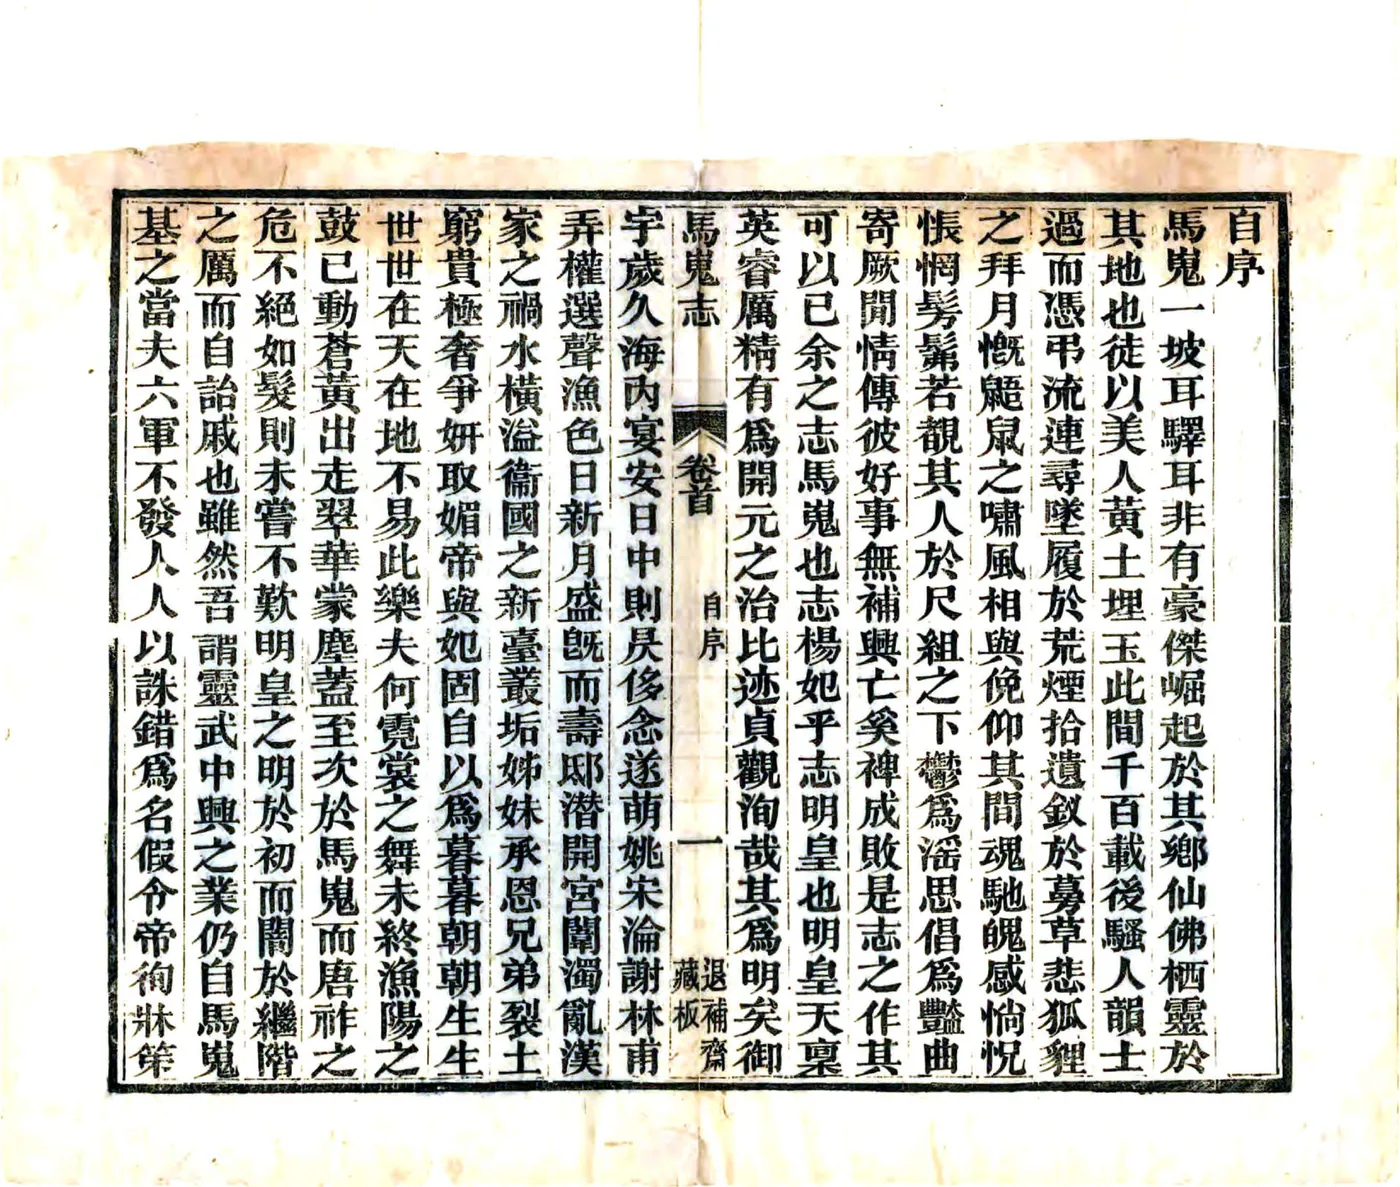 自序
馬嵬一坡耳驛耳非有豪傑崛起於其鄉仙佛栖靈於
其地也徒以美人黃土埋玉此間千百載後騷人韻士
過而憑弔流連尋墜履於荒煙拾遺釵於蔓草悲狐貍
之拜月慨鼯鼠之嘯風相與俛仰其間魂馳魄感惝怳
悵惘髣髴若覩其人於尺組之下鬱爲滛思倡爲豔曲
寄厥閒情傳彼好事無補興亡奚裨成敗是志之作其
可以已余之志馬嵬也志楊妃乎志明皇也明皇天稟
英睿厲精有爲開元之治比迹貞觀洵哉其爲明矣御
馬嵬志
卷首
自序
一
退補齋
藏板
宇歲久海內宴安日中則昃侈念遂萌姚宋淪謝林甫
弄權選聲漁色日新月盛旣而壽邸潛開宮闈濁亂漢
家之禍水橫溢衞國之新臺叢垢姊妹承恩兄弟裂土
窮貴極奢爭妍取媚帝與妃固自以爲暮暮朝朝生生
世世在天在地不易此樂夫何霓裳之舞未終漁陽之
鼓已動蒼黃出走翠華蒙塵蓋至次於馬嵬而唐祚之
危不絕如髮則未嘗不歎明皇之明於初而闇於繼階
之厲而自詒戚也雖然吾謂靈武中興之業仍自馬嵬
基之當夫六軍不發人人以誅錯爲名假令帝徇牀笫